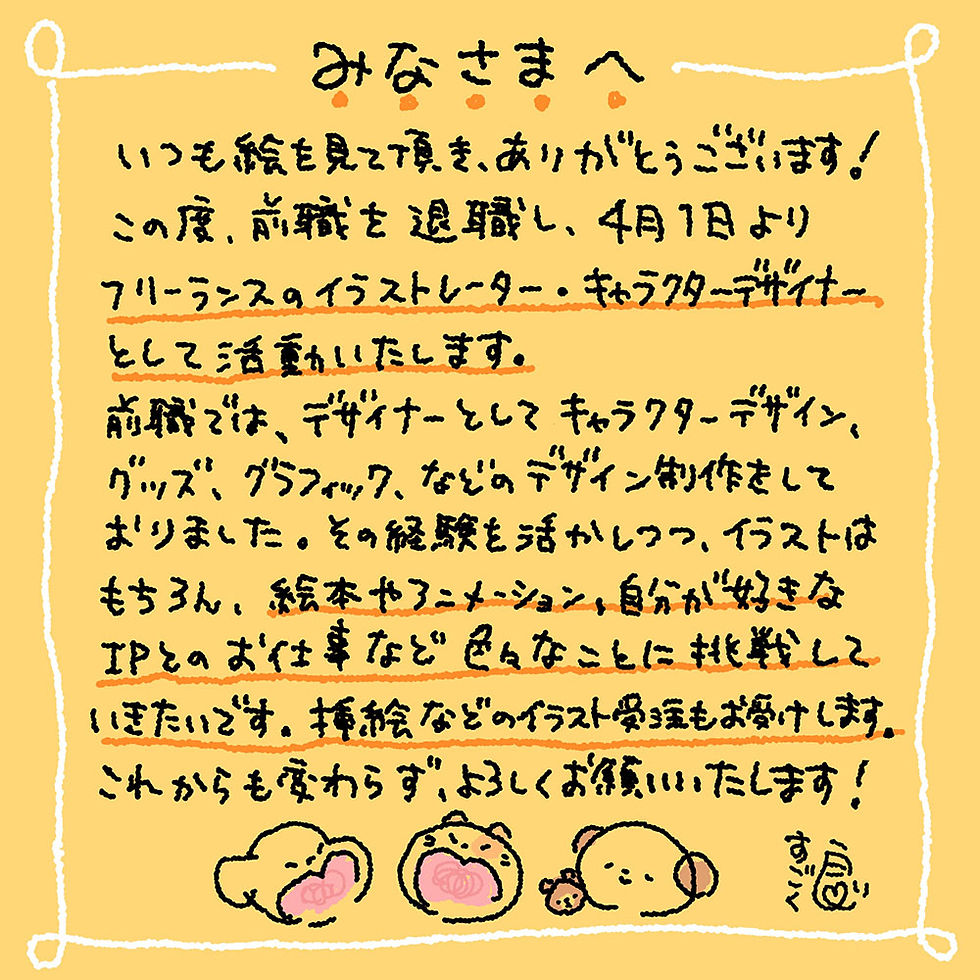 みなさまへ
いつも絵を見て頂き、ありがとうございます！
この度、前職を退職し、4月1日より
フリーランスのイラストレーター・キャラクターデザイナー
として活動いたします。
前職では、デザイナーとしてキャラクターデザイン、
グッズ、グラフィック、などのデザイン制作をして
おりました。その経験を活かしつつ、イラストは
もちろん、絵本やアニメーション、自分が好きな
IPとのお仕事など色々なことに挑戦して
いきたいです。挿絵などのイラスト受注もお受けします。
これからも変わらず、よろしくお願いいたします！
すごく